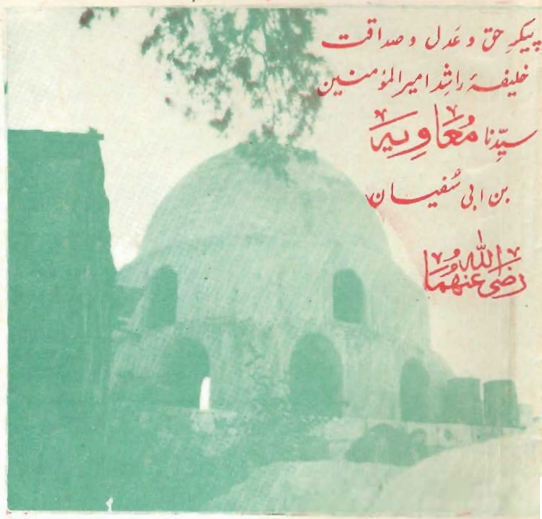 پیکرِ حق و عَدل و صداقت
خلیفۂ راشِد امیر المؤمنین
سیِّدنا مُعَاوِیَہ
بن ابی سُفیان
رَضِیَ اللّٰهُ عَنْهُمَا